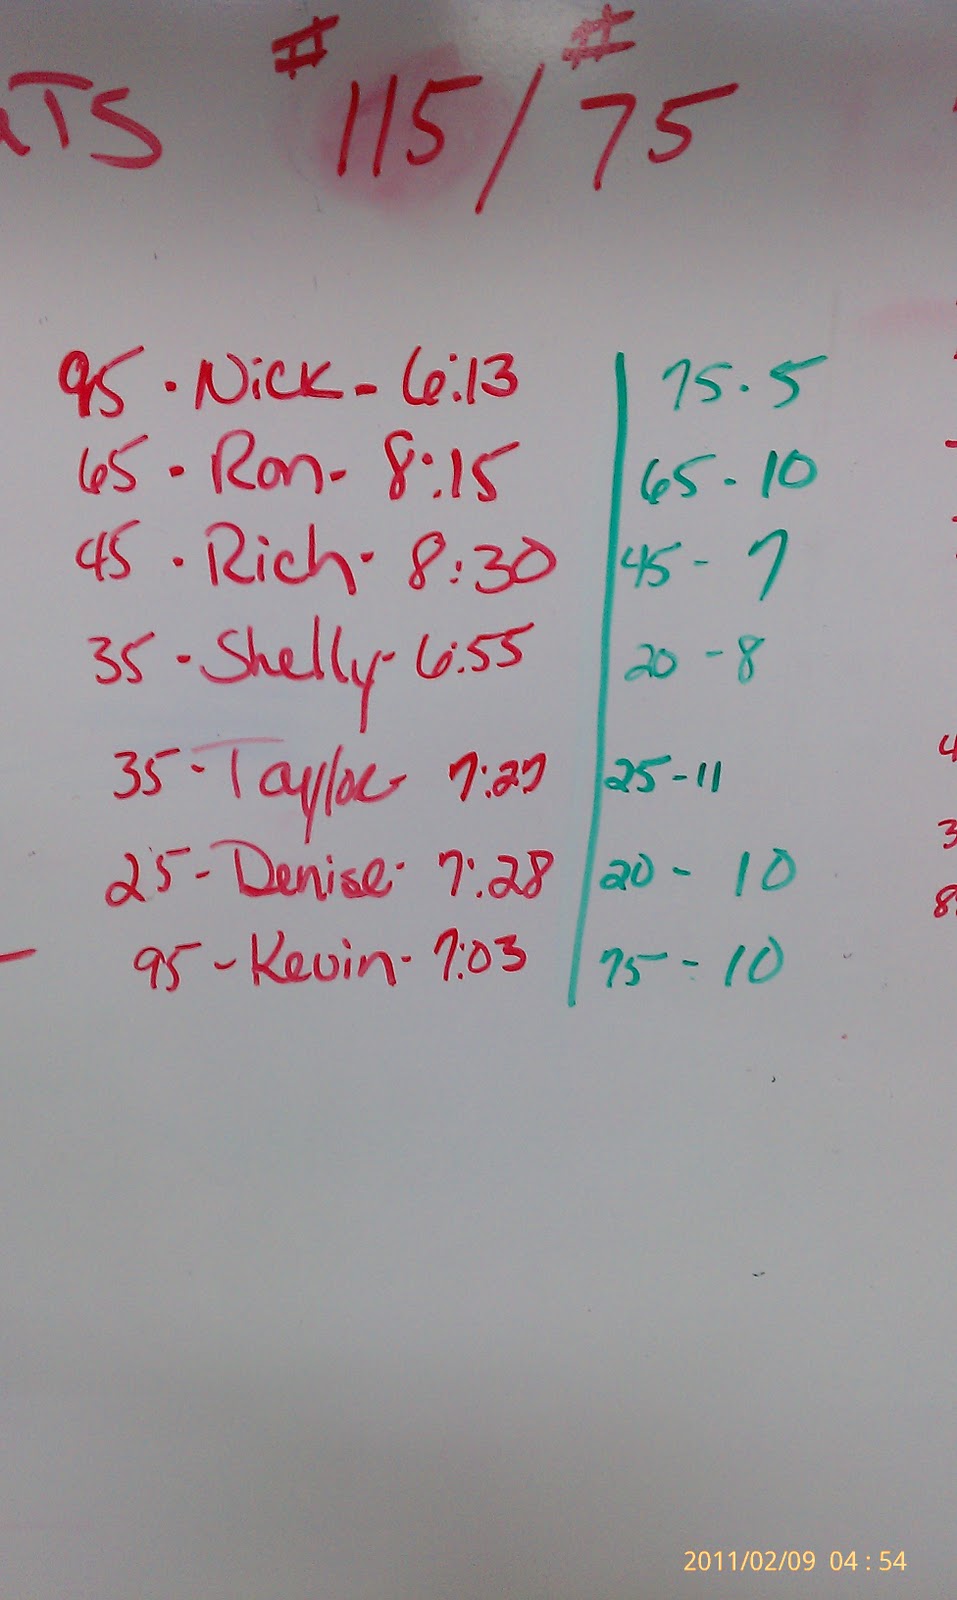 TS #115/#75
95 · Nick - 6:13 | 75 . 5
65 · Ron - 8:15 | 65 - 10
45 · Rich - 8:30 | 45 - 7
35 - Shelly - 6:55 | 20 - 8
35 - Taylor - 7:27 | 25 - 11
25 - Denise - 7:28 | 20 - 10
95 - Kevin - 7:03 | 75 - 10
4
3
8
2011/02/09 04:54